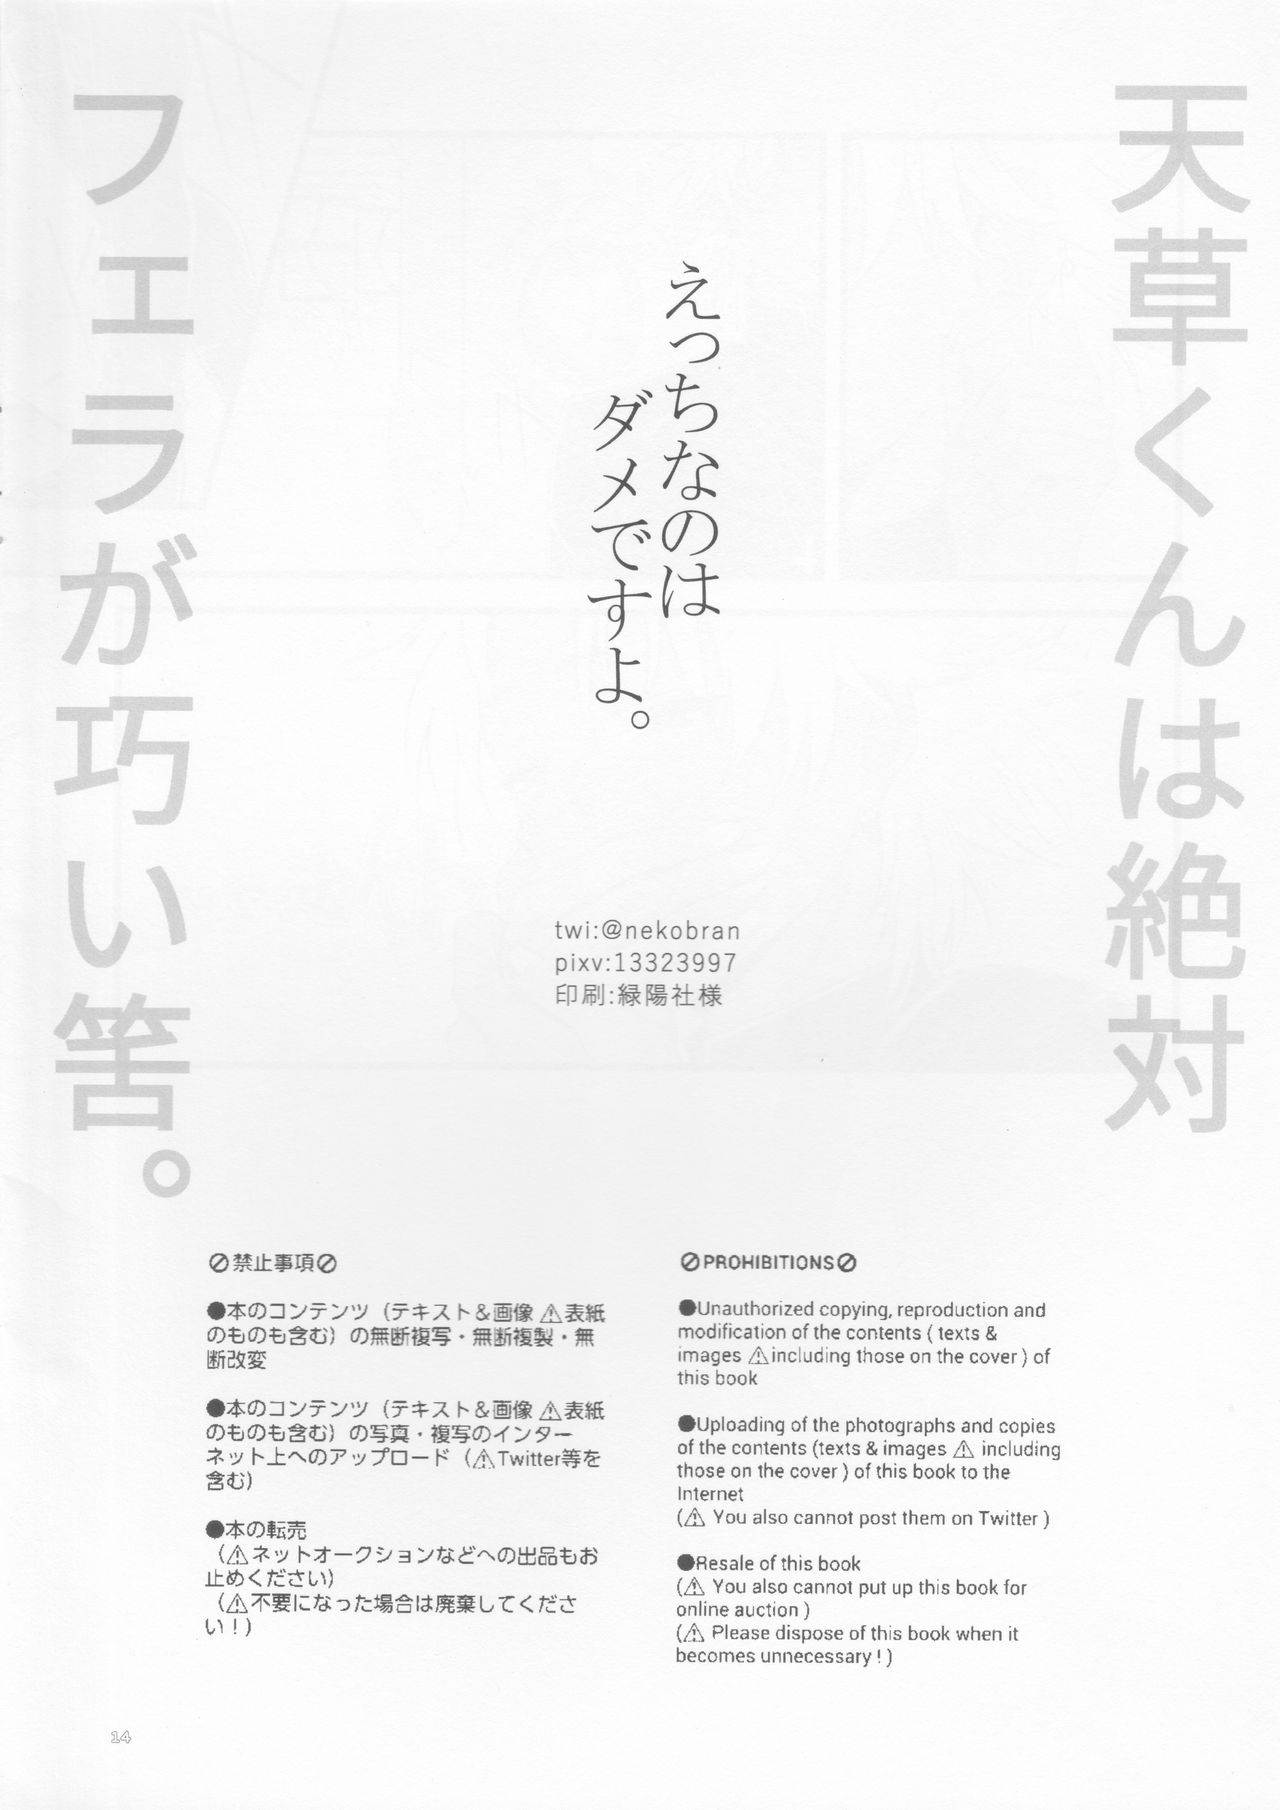 天草くんは絶対
フェラが巧い筈。
えっちなのは
ダメですよ。
twi:@nekobran
pixv:13323997
印刷:緑陽社様
⊘禁止事項⊘
●本のコンテンツ（テキスト＆画像 ⚠表紙
のものも含む）の無断複写・無断複製・無
断改変
●本のコンテンツ（テキスト＆画像 ⚠表紙
のものも含む）の写真・複写のインター
ネット上へのアップロード（⚠Twitter等を
含む）
●本の転売
（⚠ネットオークションなどへの出品もお
止めください）
（⚠不要になった場合は廃棄してくださ
い！）
⊘PROHIBITIONS⊘
●Unauthorized copying, reproduction and
modification of the contents ( texts &
images ⚠including those on the cover ) of
this book
●Uploading of the photographs and copies
of the contents (texts & images ⚠ including
those on the cover ) of this book to the
Internet
(⚠ You also cannot post them on Twitter )
●Resale of this book
(⚠ You also cannot put up this book for
online auction )
(⚠ Please dispose of this book when it
becomes unnecessary ! )
14